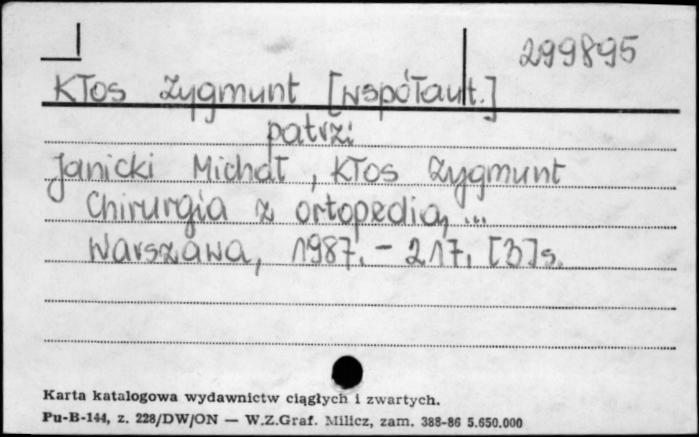 299895
Kłos Zygmunt [współaut.]
patrz:
Janicki Michał, Kłos Zygmunt
Chirurgia z ortopedią, ...
Warszawa, 1987. - 217, [3] s.
Karta katalogowa wydawnictw ciągłych i zwartych.
Pu-B-144, z. 228/DW/ON — W.Z.Graf. Milicz, zam. 388-86 5.650.000